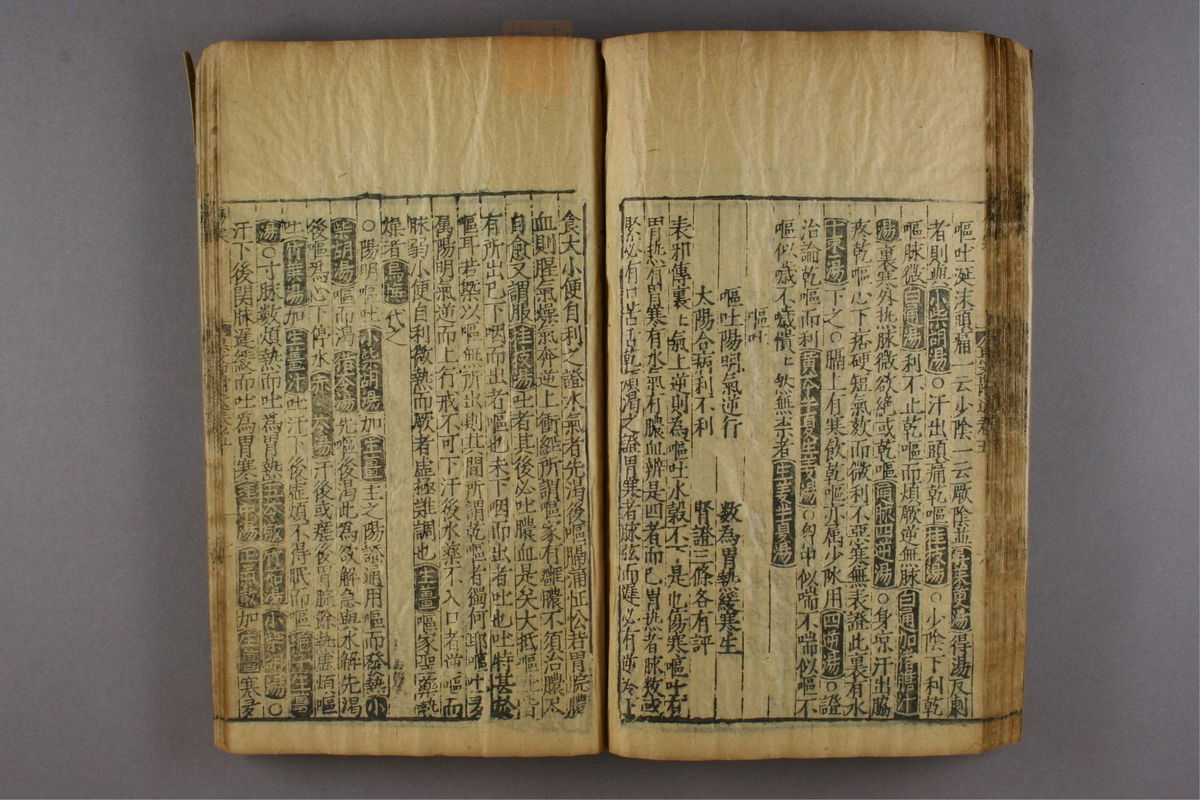 嘔吐涎沫頭痛一云少陰一云厥陰並吳茱萸湯得湯反劇
者則與小柴胡湯○汗出頭痛乾嘔桂枝湯○少陰下利乾
嘔脉微白通湯利不止乾嘔而煩厥逆無脉白通加猪膽汁
湯裏寒外熱脉微欲絶或乾嘔通脉四逆湯○身凉汗出脇
疼乾嘔心下痞硬短氣数而微利不惡寒無表證此裏有水
十棗湯下之○膈上有寒飲乾嘔亦属少陰用四逆湯○證
治論乾嘔而利黄芩半夏生姜湯○匈中似喘不喘似嘔不
嘔似噦不噦憒憒然無柰者生姜半夏湯
嘔吐
嘔吐陽明氣逆行 数為胃熱緩寒生
太陽合病利不利 腎證三條各有評
表邪傳裏裏氣上逆則為嘔吐水穀不下是也傷寒嘔吐有
胃熱有胃寒有水氣有膿血辨是四者而已胃熱者脉数或
緊必有口苦舌乾煩渴之證胃寒者脉弦而遲必有逆冷
食大小便自利之證水氣者先渴後嘔膈涌怔忪若胃脘膿
血則腥氣燥氣奔逆上衝經所謂嘔家有癰膿不須治膿尽
自愈又謂服桂枝湯吐者其後必吐膿血是矣大抵嘔吐皆
有所出已下咽而出者嘔也未下咽而出者吐也吐特甚於
嘔耳若槩以嘔無所出則其間所謂乾嘔者獨何耶嘔吐多
属陽明氣逆而上行戒不可下汗後水藥不入口者逆嘔而
脉弱小便自利微熱而厥者虚極難調也生薑嘔家聖藥熱
燥者烏梅代之
○陽明嘔吐小柴胡湯加生薑主之陽證通用嘔而發熱小
柴胡湯嘔而渴猪苓湯先嘔後渴此為欲解急與水解先渴
後嘔為心下停水赤茯苓湯汗後或瘥後胃脉餘熱虚煩嘔
吐竹葉湯加生薑汁吐汗下後虚煩不得眠而嘔梔子生薑
湯○寸脉数煩熱而吐為胃熱五苓散竹茹湯小柴胡湯○
汗下後関脉遲緩而吐為胃寒理中湯正氣散加生薑寒多